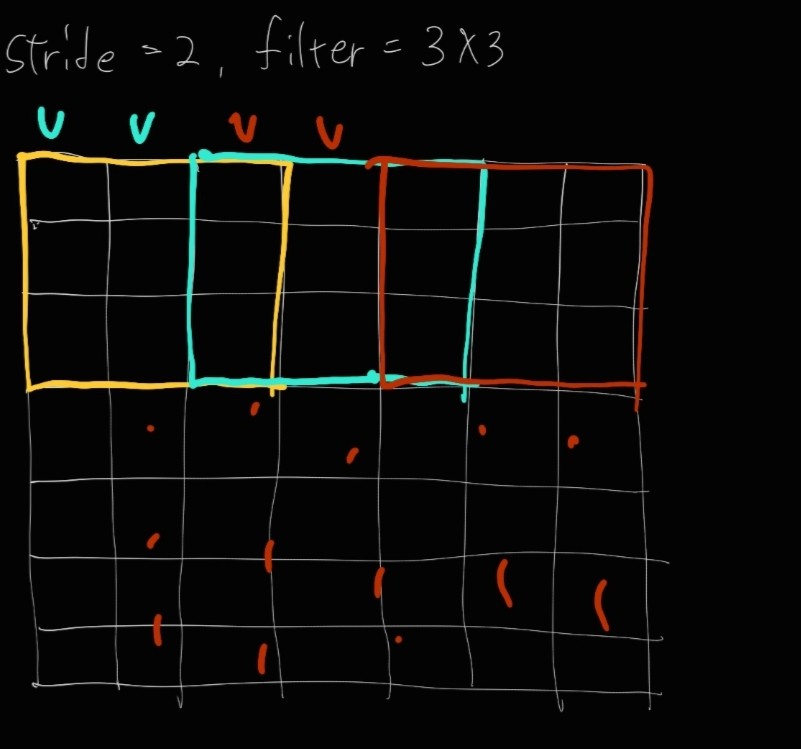 Stride = 2, filter = 3x3